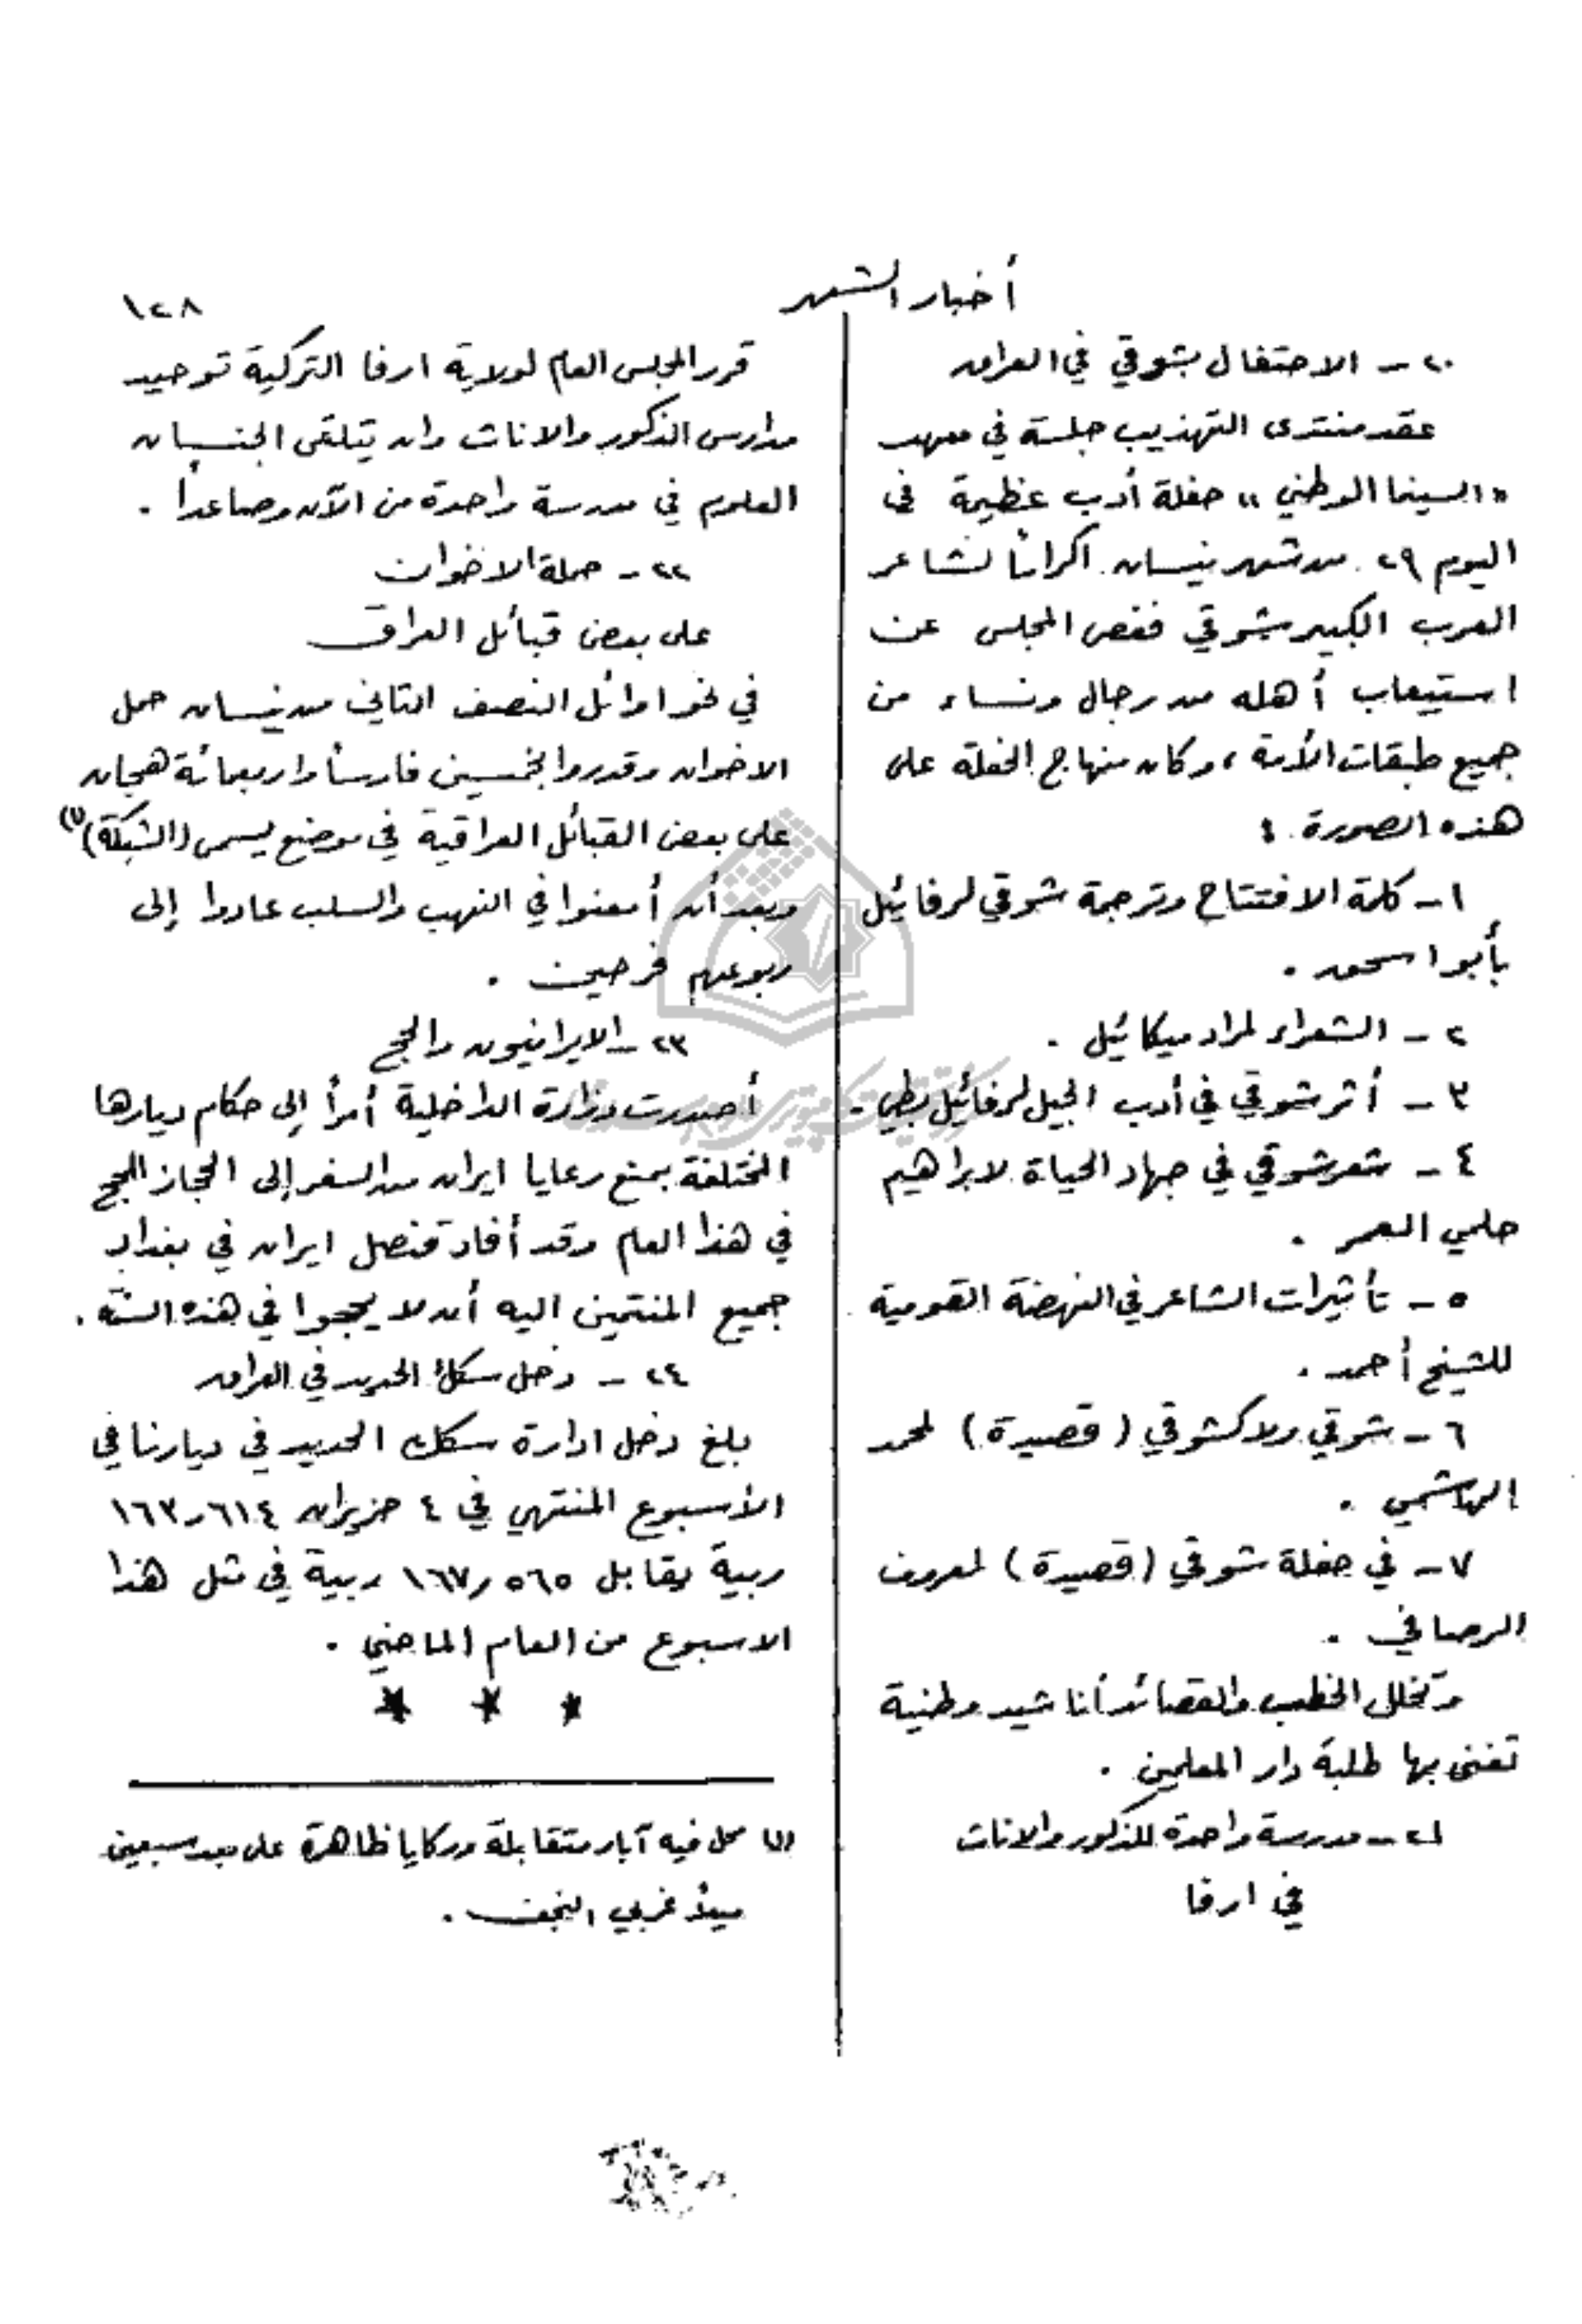 أخبار الشهر
١٢٨
٢٠ - الاحتفال بشوقي في العراق
عقد منتدى التهذيب جلسة في معهد
«السينما الوطني» حفلة أدب عظيمة في
اليوم ٢٩ من شهر نيسان اكراماً لشاعر
العرب الكبير شوقي فغص المجلس عن
استيعاب أهله من رجال ونساء من
جميع طبقات الأمة، وكان منهاج الحفلة على
هذه الصورة :
١ - كلمة الافتتاح وترجمة شوقي لرفائيل
بأبو اسحق .
٢ - الشعراء لمراد ميكائيل .
٣ - أثر شوقي في أدب الجيل لرفائيل بطي .
٤ - شعر شوقي في جهاد الحياة لابراهيم
حلمي العمر .
٥ - تأثيرات الشاعر في النهضة القومية
للشيخ أحمد .
٦ - شوقي ولا كشوقي ( قصيدة ) لمحمد
الهاشمي .
٧ - في حفلة شوقي ( قصيدة ) لمعروف
الرصافي .
وتخلل الخطب والقصائد أناشيد وطنية
تغنى بها طلبة دار المعلمين .
٢١ - مدرسة واحدة للذكور والاناث
في ارفا
قرر المجلس العام لولاية ارفا التركية توحيد
مدارس الذكور والاناث وان يتلقى الجنسان
العلوم في مدرسة واحدة من الآن وصاعداً .
٢٢ - حملة الاخوان
على بعض قبائل العراق
في نحو اوائل النصف الثاني من نيسان حمل
الاخوان وقدروا بخمسين فارساً واربعمائة هجان
على بعض القبائل العراقية في موضع يسمى (الشبكة)(١)
وبعد أن أمعنوا في النهب والسلب عادوا إلى
ربوعهم فرحين .
٢٣ - الايرانيون والحج
أصدرت وزارة الداخلية أمراً إلى حكام ديارها
المختلفة بمنع رعايا ايران من السفر إلى الحجاز للحج
في هذا العام وقد أفاد قنصل ايران في بغداد
جميع المنتمين اليه أن لا يحجوا في هذه السنة .
٢٤ - دخل سكك الحديد في العراق
بلغ دخل ادارة سكك الحديد في ديارنا في
الأسبوع المنتهي في ٤ حزيران ١٦٣٫٦١٤
ربية يقابل ١٦٧٫٥٦٥ ربية في مثل هذا
الاسبوع من العام الماضي .
* * *
(١) محل فيه آبار متقابلة وركايا ظاهرة على بعد سبعين
ميلاً غربي النجف .